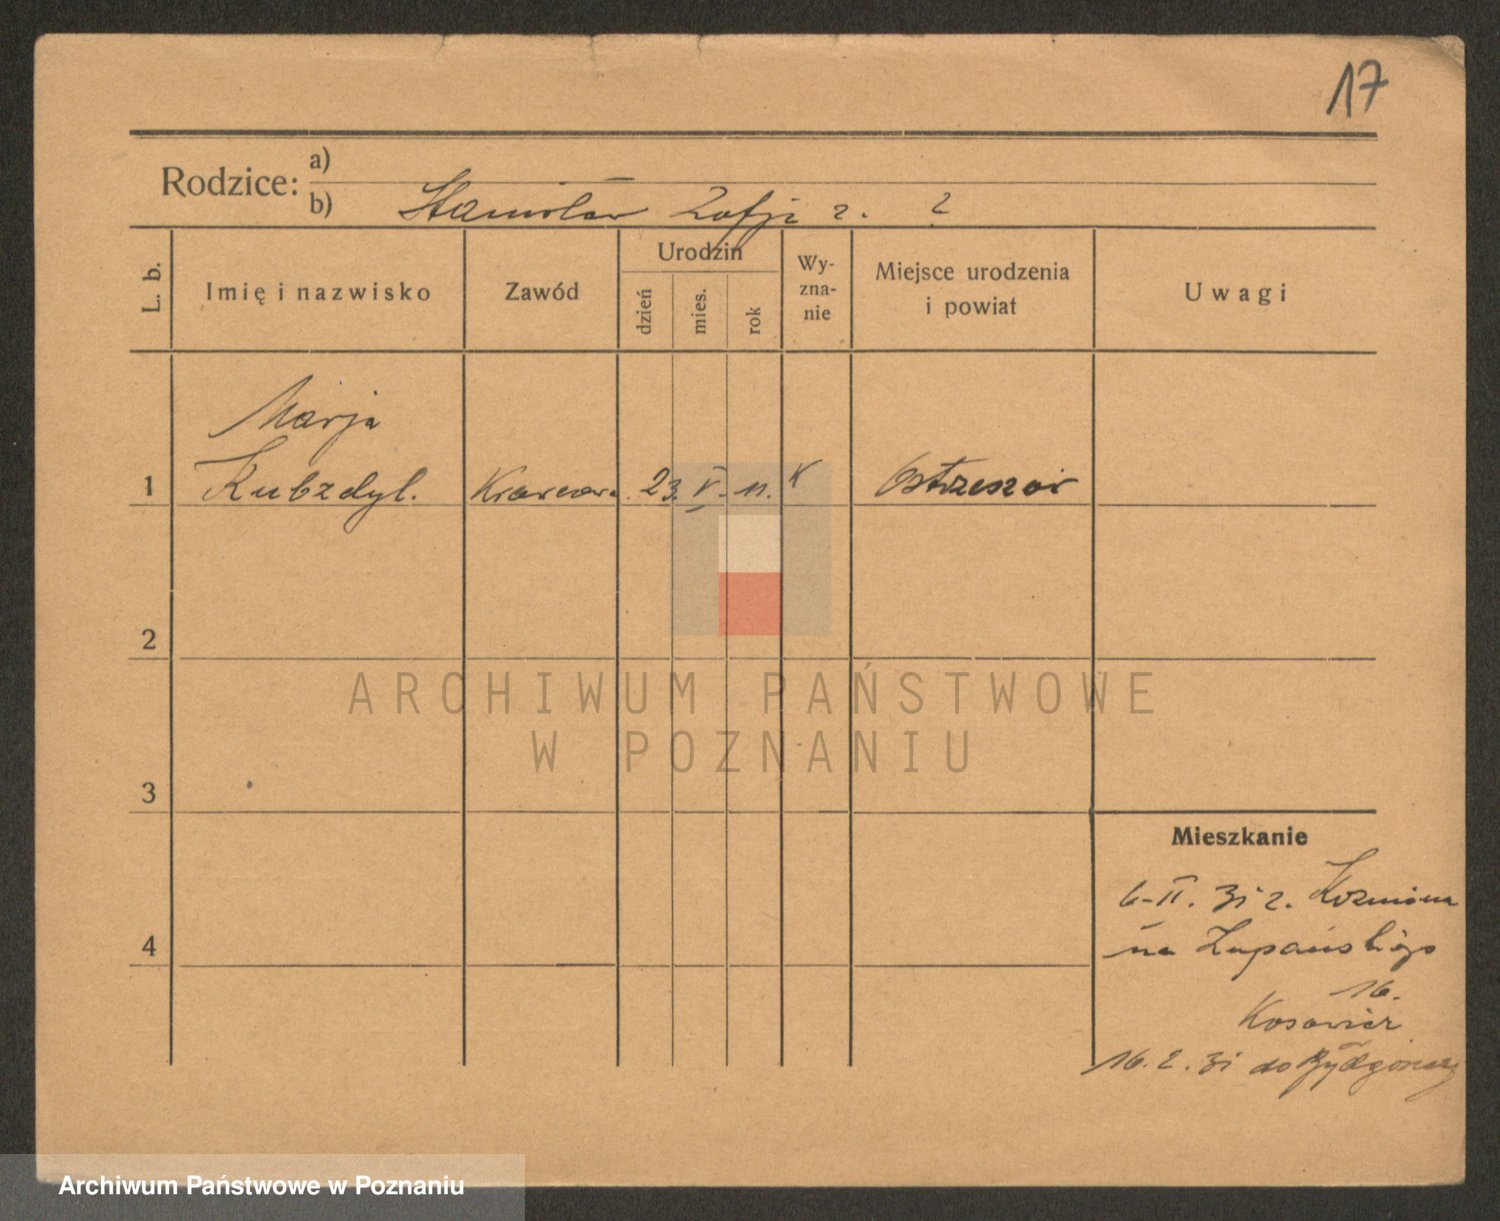 17
Rodzice: a)
b) Stanisław Zofji z. ?
L. b.
Imię i nazwisko
Zawód
Urodzin
dzień
mies.
rok
Wy-
zna-
nie
Miejsce urodzenia
i powiat
Uwagi
Marja
1 Kubzdyl. Krawcowa. 23. V. 11. K Ostrzeszów
2
3
4
Mieszkanie
6-II. 31 z. Koźmina
na Żupańskiego
16.
16.2.31 do Bydgoszczy
ARCHIWUM PAŃSTWOWE
W POZNANIU
Archiwum Państwowe w Poznaniu